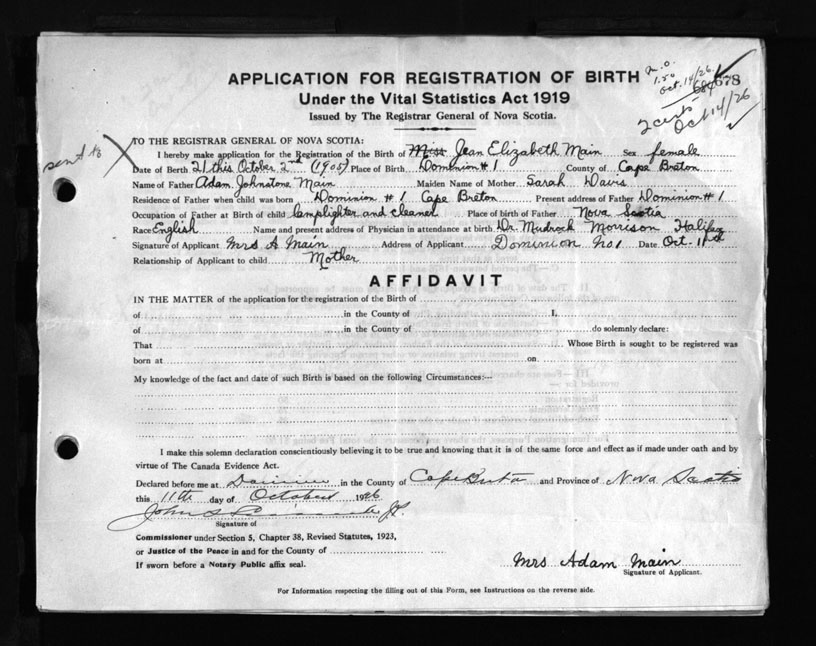 APPLICATION FOR REGISTRATION OF BIRTH
Under the Vital Statistics Act 1919
Issued by The Registrar General of Nova Scotia.
1.50
Oct. 14/26
678
2 certs
Oct 14/26
sent to
TO THE REGISTRAR GENERAL OF NOVA SCOTIA:
I hereby make application for the Registration of the Birth of Miss Jean Elizabeth Main Sex female
Date of Birth 21 this October 2nd (1905) Place of Birth Dominion # 1 County of Cape Breton
Name of Father Adam Johnstone Main Maiden Name of Mother Sarah Davis
Residence of Father when child was born Dominion # 1 Cape Breton Present address of Father Dominion # 1
Occupation of Father at Birth of child lamplighter and cleaner Place of birth of Father Nova Scotia
Race English Name and present address of Physician in attendance at birth Dr. Murdock Morrison Halifax
Signature of Applicant Mrs A Main Address of Applicant Dominion No 1 Date Oct.
Relationship of Applicant to child Mother
AFFIDAVIT
IN THE MATTER of the application for the registration of the Birth of
of in the County of I,
of in the County of do solemnly declare:
That Whose Birth is sought to be registered was
born at on
My knowledge of the fact and date of such Birth is based on the following Circumstances:--
I make this solemn declaration conscientiously believing it to be true and knowing that it is of the same force and effect as if made under oath and by
virtue of The Canada Evidence Act.
Declared before me at Dominion in the County of Cape Breton and Province of Nova Scotia
this 11th day of October 1926
John
Signature of
Commissioner under Section 5, Chapter 38, Revised Statutes, 1923,
or Justice of the Peace in and for the County of
If sworn before a Notary Public affix seal.
Mrs Adam Main
Signature of Applicant.
For Information respecting the filling out of this Form, see Instructions on the reverse side.